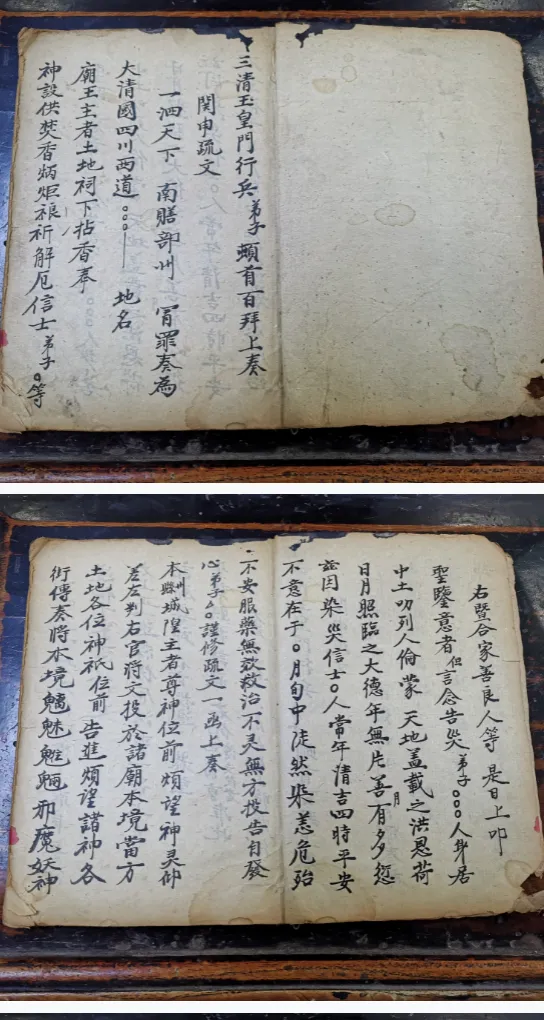 三清玉皇門行兵弟子頓首百拜上奏
関申疏文
一泗天下 南膳部州 冐罪奏為
大清國四川西道。。。 地名
廟王主者土地祠下拈香奉
神設供焚香炳炬禳祈解厄信士弟子。等
右暨合家善良人等 是日上叩
聖鑒意者但言念告災弟子。。。人身居
中土叨列人倫蒙 天地盖載之洪恩荷
日月照臨之大德年無片善月有多愆
茲因染災信士。人當年清吉四時平安
不意在于。月旬中陡然染恙危殆
不安服藥無效救治不灵無方投告自發
心弟子。。謹修疏文一函上奏
本州縣城隍主者尊神位前 煩望神灵仰
差左判右官將文投於諸廟本境當方
土地各位神祇位前 告進煩望諸神各
衙傳奏將本境魑魅魍魎邪魔妖神